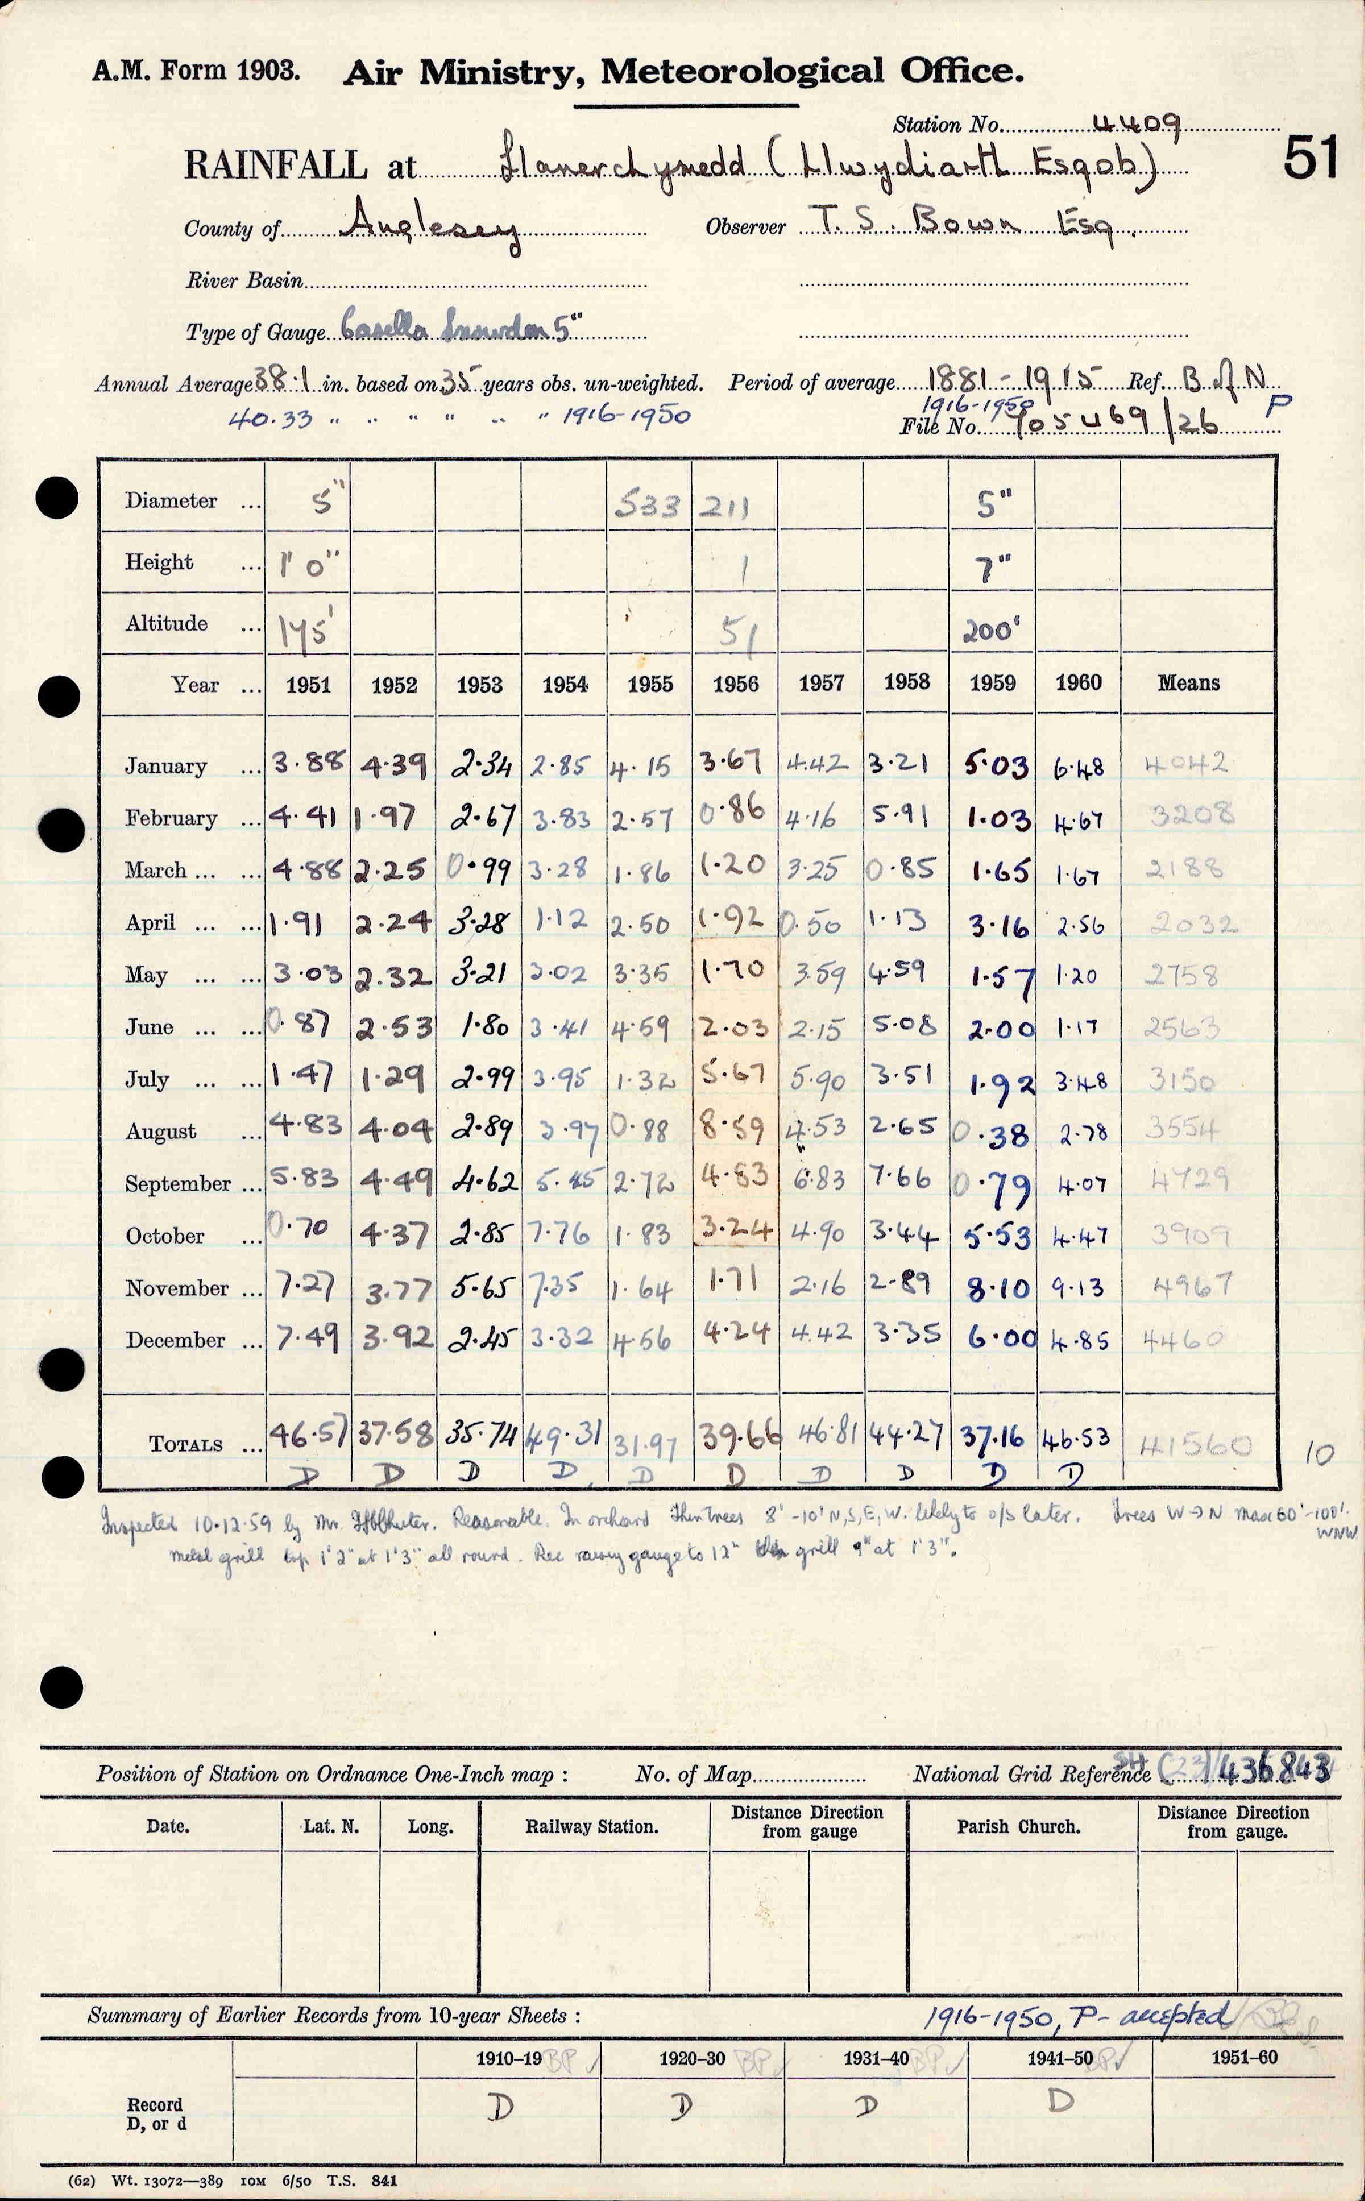 A.M. Form 1903. Air Ministry, Meteorological Office.
Station No. 4409
51
RAINFALL at Llanerchymedd (Llwydiarth Esgob)
County of Anglesey Observer T. S. Bown Esq.
River Basin
Type of Gauge Casella Snowdon 5"
Annual Average 38.1 in. based on 35 years obs. un-weighted. Period of average 1881-1915 Ref. B of N
40.33 " " " " " " 1916-1950 1916-1950 P
File No. 705469/26
Diameter ... 5" 533 211 5"
Height ... 1' 0" 1 7"
Altitude ... 175' 51 200'
Year ... 1951 1952 1953 1954 1955 1956 1957 1958 1959 1960 Means
January ... 3.88 4.39 2.34 2.85 4.15 3.67 4.42 3.21 5.03 6.48 4042
February ... 4.41 1.97 2.67 3.83 2.57 0.86 4.16 5.91 1.03 4.67 3208
March ... ... 4.88 2.25 0.99 3.28 1.86 1.20 3.25 0.85 1.65 1.67 2188
April ... ... 1.91 2.24 3.28 1.12 2.50 1.92 0.50 1.13 3.16 2.56 2032
May ... ... 3.03 2.32 3.21 3.02 3.35 1.70 3.59 4.59 1.57 1.20 2758
June ... ... 0.87 2.53 1.80 3.41 4.59 2.03 2.15 5.08 2.00 1.17 2563
July ... ... 1.47 1.29 2.99 3.95 1.32 5.67 5.90 3.51 1.92 3.48 3150
August ... 4.83 4.04 2.89 3.97 0.88 8.59 4.53 2.65 0.38 2.78 3554
September ... 5.83 4.49 4.62 5.45 2.72 4.83 6.83 7.66 0.79 4.07 4729
October ... 0.70 4.37 2.85 7.76 1.83 3.24 4.90 3.44 5.53 4.47 3909
November ... 7.27 3.77 5.65 7.35 1.64 1.71 2.16 2.89 8.10 9.13 4967
December ... 7.49 3.92 2.45 3.32 4.56 4.24 4.42 3.35 6.00 4.85 4460
TOTALS ... 46.57 37.58 35.74 49.31 31.97 39.66 46.81 44.27 37.16 46.53 41560 10
D D D D D D D D D D
Inspected 10.12.59 by Mr. Reasonable. In orchard Thin trees 8'-10' N, S, E, W. likely to o/s later. Trees W→N max 60'-100'.
WNW
metal grill top 1'2" at 1'3" all round. Rec raising gauge to 12" grill 9" at 1'3".
Position of Station on Ordnance One-Inch map : No. of Map National Grid Reference SH (23) 436843
Date. Lat. N. Long. Railway Station. Distance Direction from gauge Parish Church. Distance Direction from gauge.
Summary of Earlier Records from 10-year Sheets : 1916-1950, P- accepted
1910-19 BP ✓ 1920-30 BP ✓ 1931-40 BP ✓ 1941-50 BP ✓ 1951-60
Record D, or d D D D D
(62) Wt. 13072—389 10M 6/50 T.S. 841